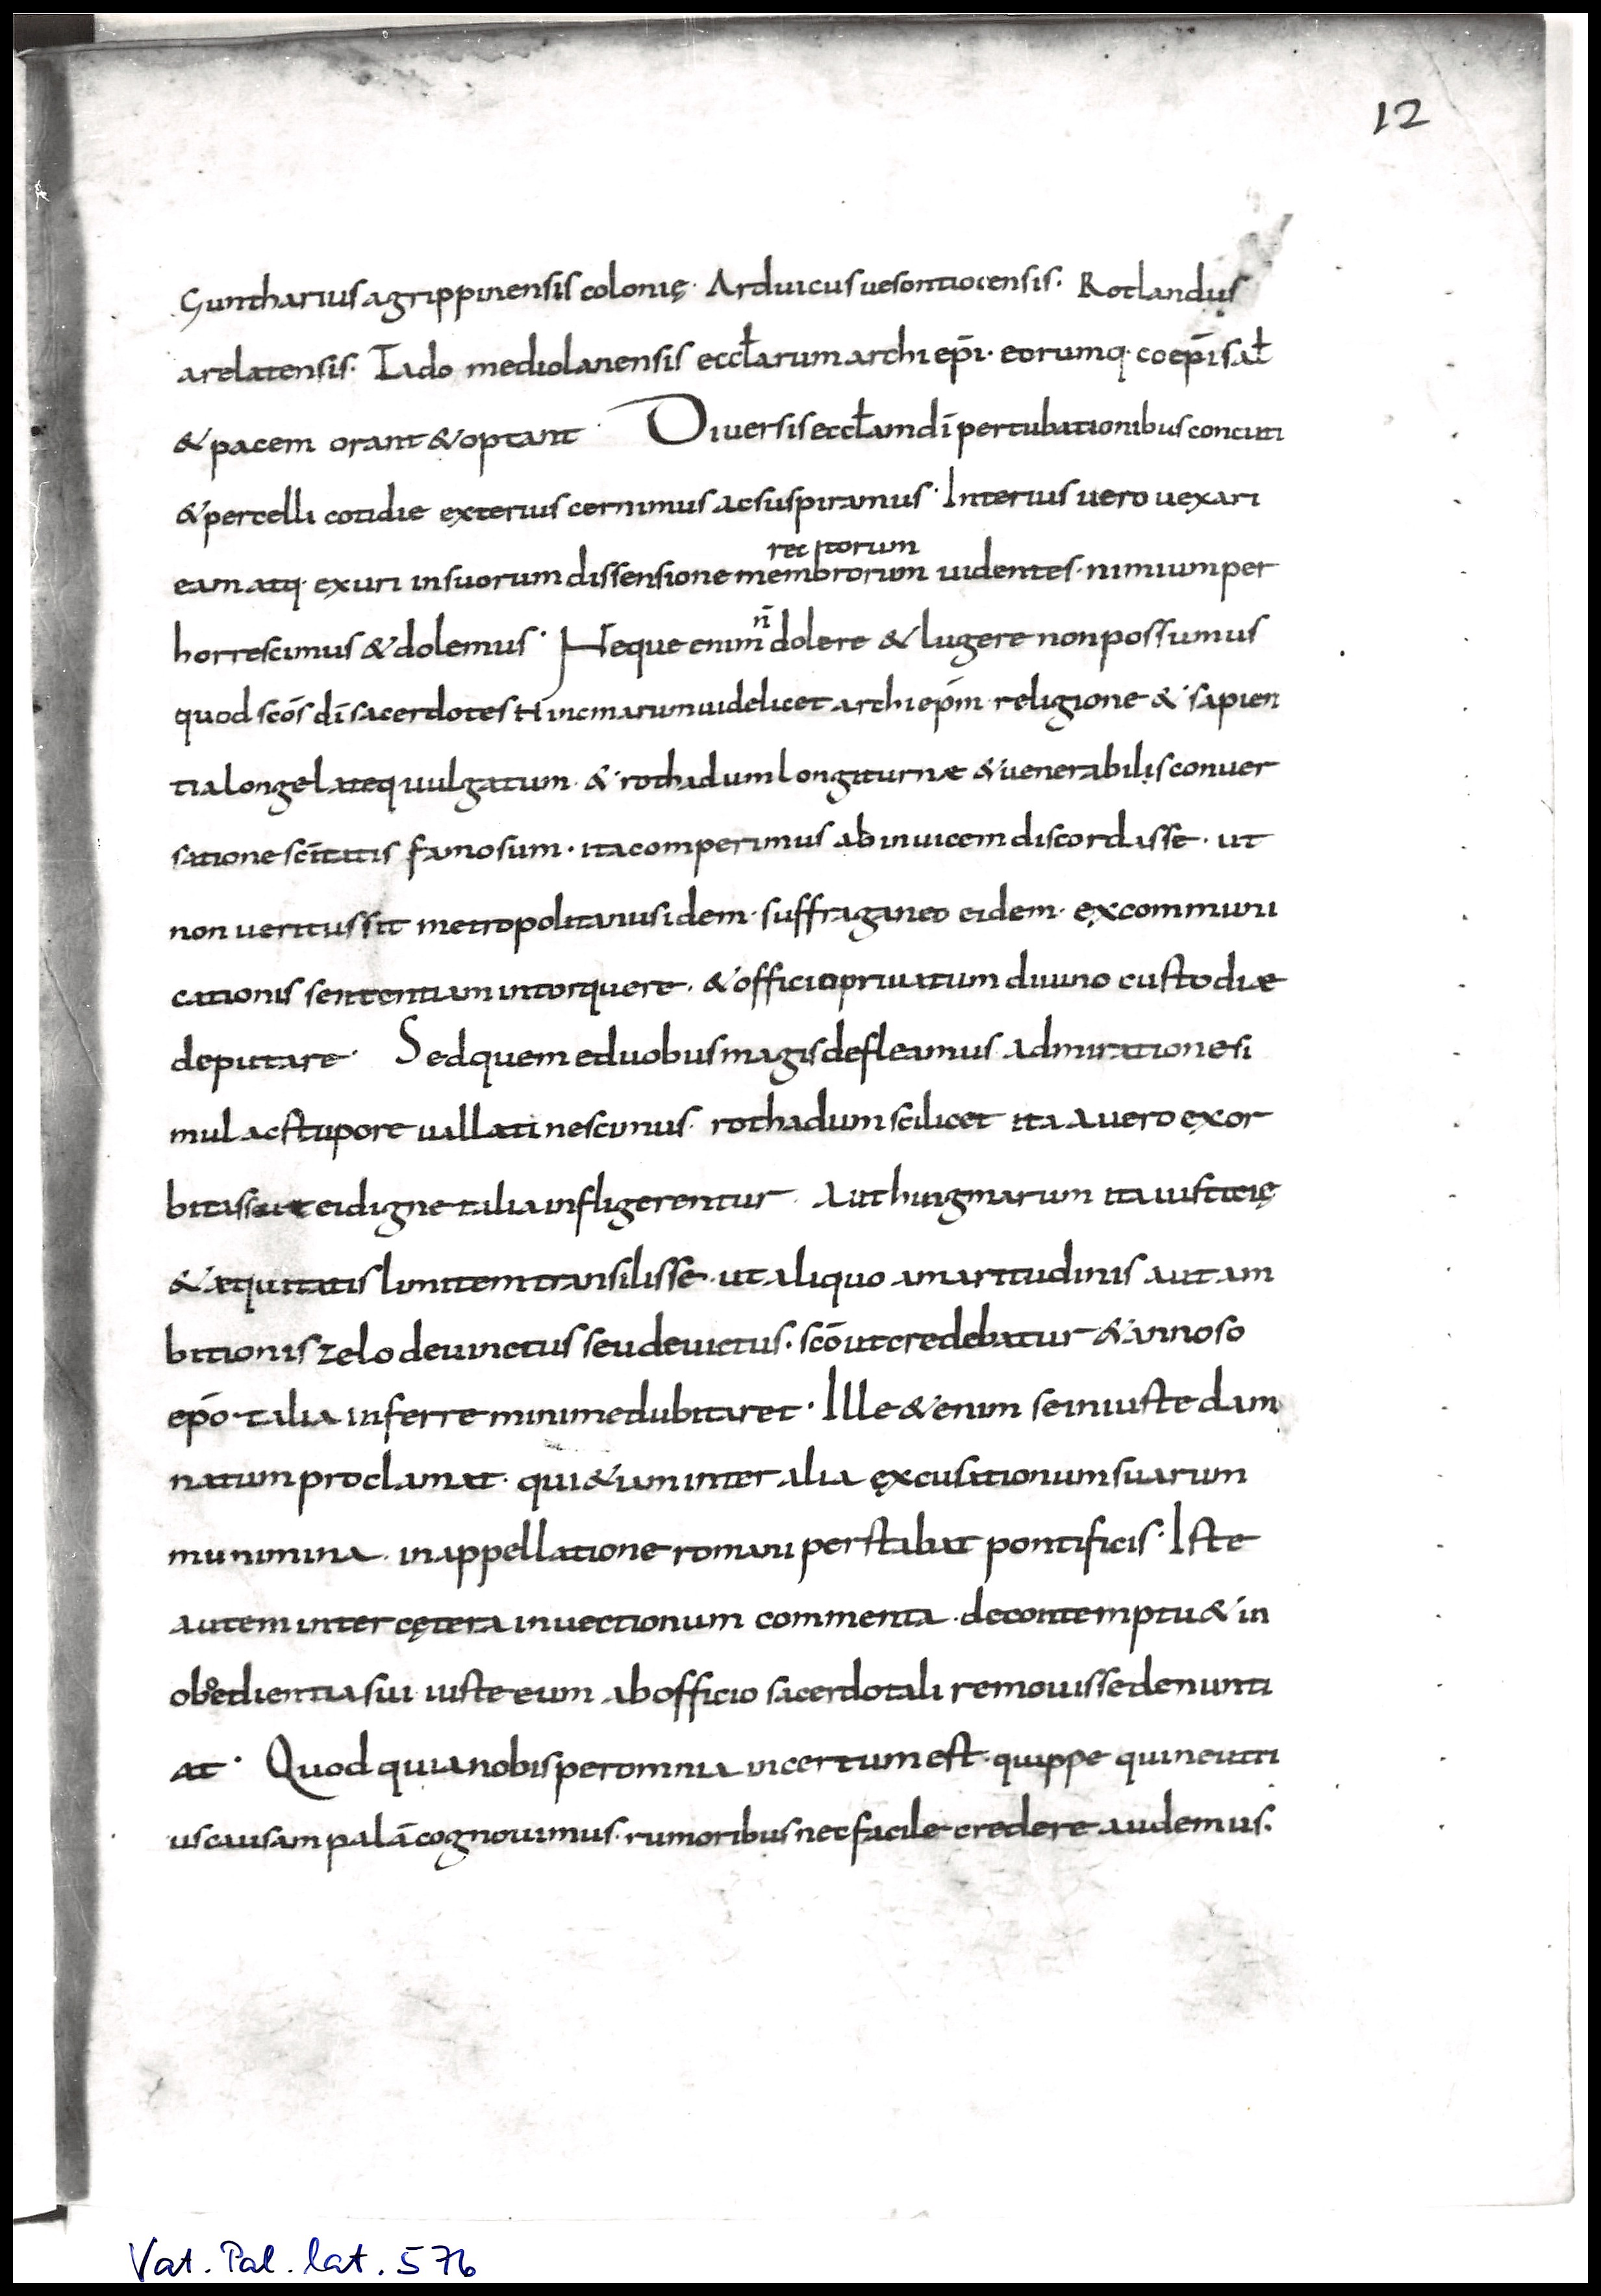 12
Guntharius agrippinensis colonię · Arduicus uesontiocensis · Rotlandus
arelatensis · Tado mediolanensis eccłarum archi ep̄i · eorumq · coep̄i sał
& pacem orant & optant · Diuersis eccłam dī pertubationibus concuti
& percelli cotidie exterius cernimus ac suspiramus · Interius uero uexari
rectorum
eam atq · exuri in suorum dissensione membrorum uidentes · nimium per
n̄
horrescimus & dolemus · Neque enim dolere & lugere non possumus
quod scōs dī sacerdotes Hincmarum uidelicet archiep̄m religione & sapien
tia longe lateq uulgatum · & rothadum longiturnæ & uenerabilis conuer
satione scītatis famosum · ita comperimus ab inuicem discordasse · ut
non ueritus sit metropolitanus idem · suffraganeo eidem · excommuni
cationis sententiam intorquere · & officio priuatum diuino custodiæ
deputare · Sed quem e duobus magis defleamus admiratione si
mul ac stupore uallati nescimus · rothadum scilicet ita a uero exor
bitasse ut ei digne talia infligerentur · Aut huigmarum ita iusticię
& æquitatis limitem transilisse · ut aliquo amaritudinis aut am
bitionis zelo deuinctus seu deuictus · scō ut credebatur & annoso
ep̄o · talia inferre minime dubitaret · Ille & enim se iniuste dam
natum proclamat · qui & iam inter alia excusationum suarum
munimina · in appellatione romani perstabat pontificis · Iste
autem inter cętera inuectionum commenta · de contemptu & in
oboedientia sui iuste eum ab officio sacerdotali remouisse denunti
at · Quod quia nobis per omnia incertum est · quippe qui neutri
us causam palā cognouimus · rumoribus nec facile credere audemus ·
Vat. Pal. lat. 576